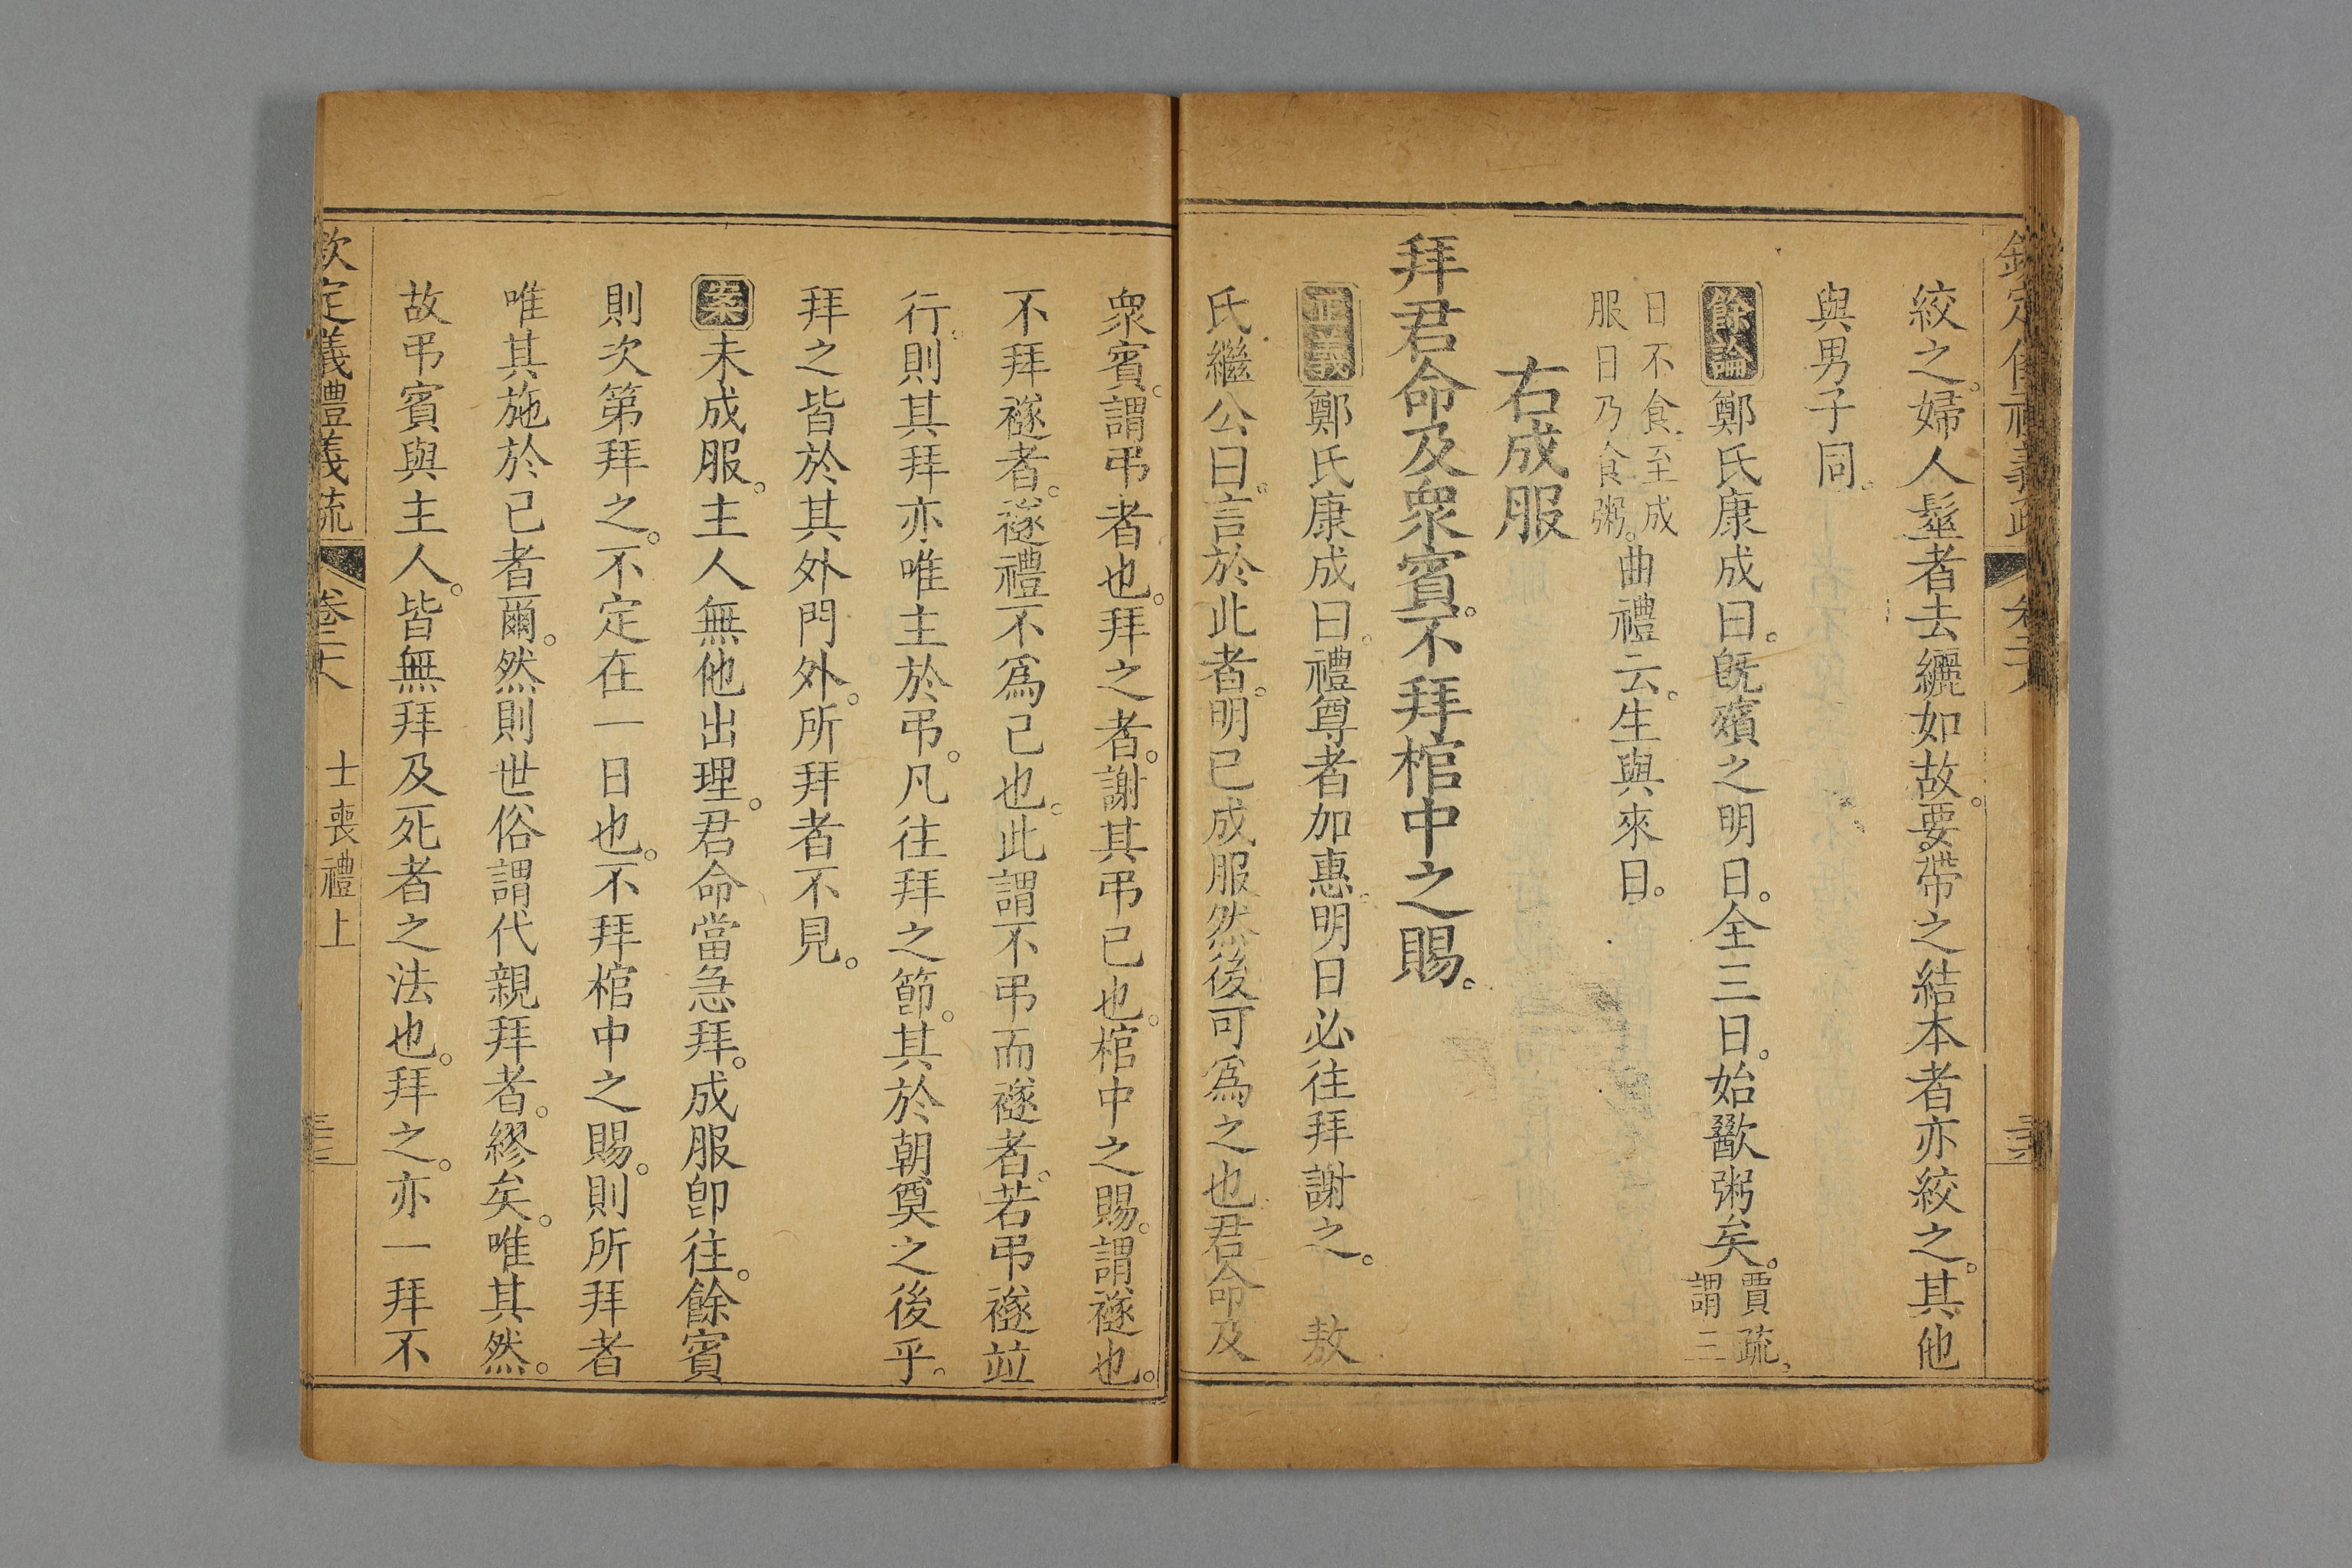 絞之。婦人髽者去纚如故。要帶之結本者亦絞之。其他
與男子同。
餘論鄭氏康成曰。旣殯之明日。全三日。始歠粥矣。賈疏、謂三
日不食。至成服日乃食粥。曲禮云。生與來日。
右成服
拜君命及衆賓。不拜棺中之賜。
正義鄭氏康成曰。禮尊者加惠。明日必往拜謝之。 敖
氏繼公曰。言於此者。明已成服然後可爲之也。君命及
衆賓。謂弔者也。拜之者。謝其弔已也。棺中之賜。謂襚也。
不拜襚者。襚禮不爲己也。此謂不弔而襚者。若弔襚竝
行。則其拜亦唯主於弔。凡往拜之節。其於朝奠之後乎。
拜之皆於其外門外。所拜者不見。
案未成服。主人無他出理。君命當急拜。成服卽往。餘賓
則次第拜之。不定在一日也。不拜棺中之賜。則所拜者
唯其施於己者爾。然則世俗謂代親拜者。繆矣。唯其然。
故弔賓與主人。皆無拜及死者之法也。拜之。亦一拜不
欽定義禮義疏 卷二十八 士喪禮上